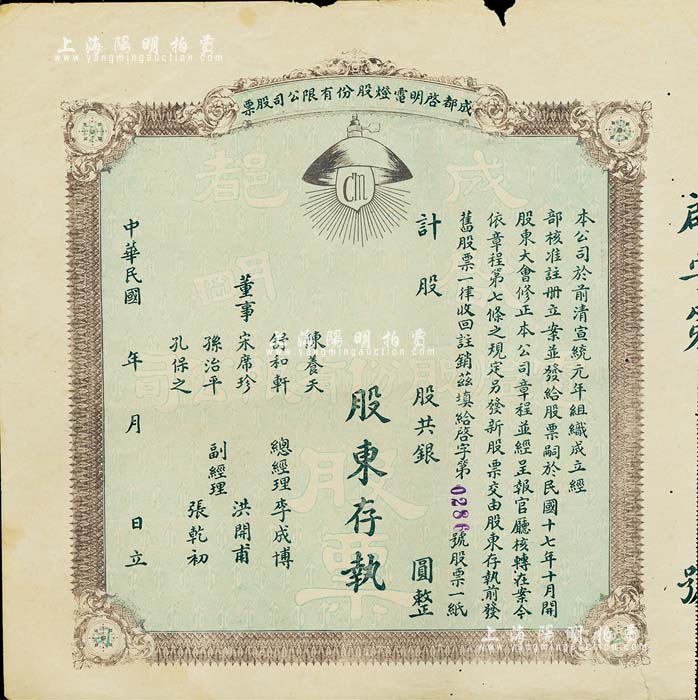 上海陽明拍賣
www.yangmingauction.com
成都啓明電燈股份有限公司股票
CM
本公司於前清宣統元年組織成立經
部核准註册立案並發給股票嗣於民國十七年十月開
股東大會修正本公司章程並經呈報官廳核轉在案今
依章程第七條之規定另發新股票交由股東存執前發
舊股票一律收回註銷茲填給啓字第0286號股票一紙
計 股 股共銀 圓整
股東存執
董事 陳養天
舒和軒
宋席珍
孫治平
孔保之
總經理 李成博
副經理 洪開甫
張乾初
中華民國 年 月 日立
號
上海陽明拍賣
www.yangmingauction.com